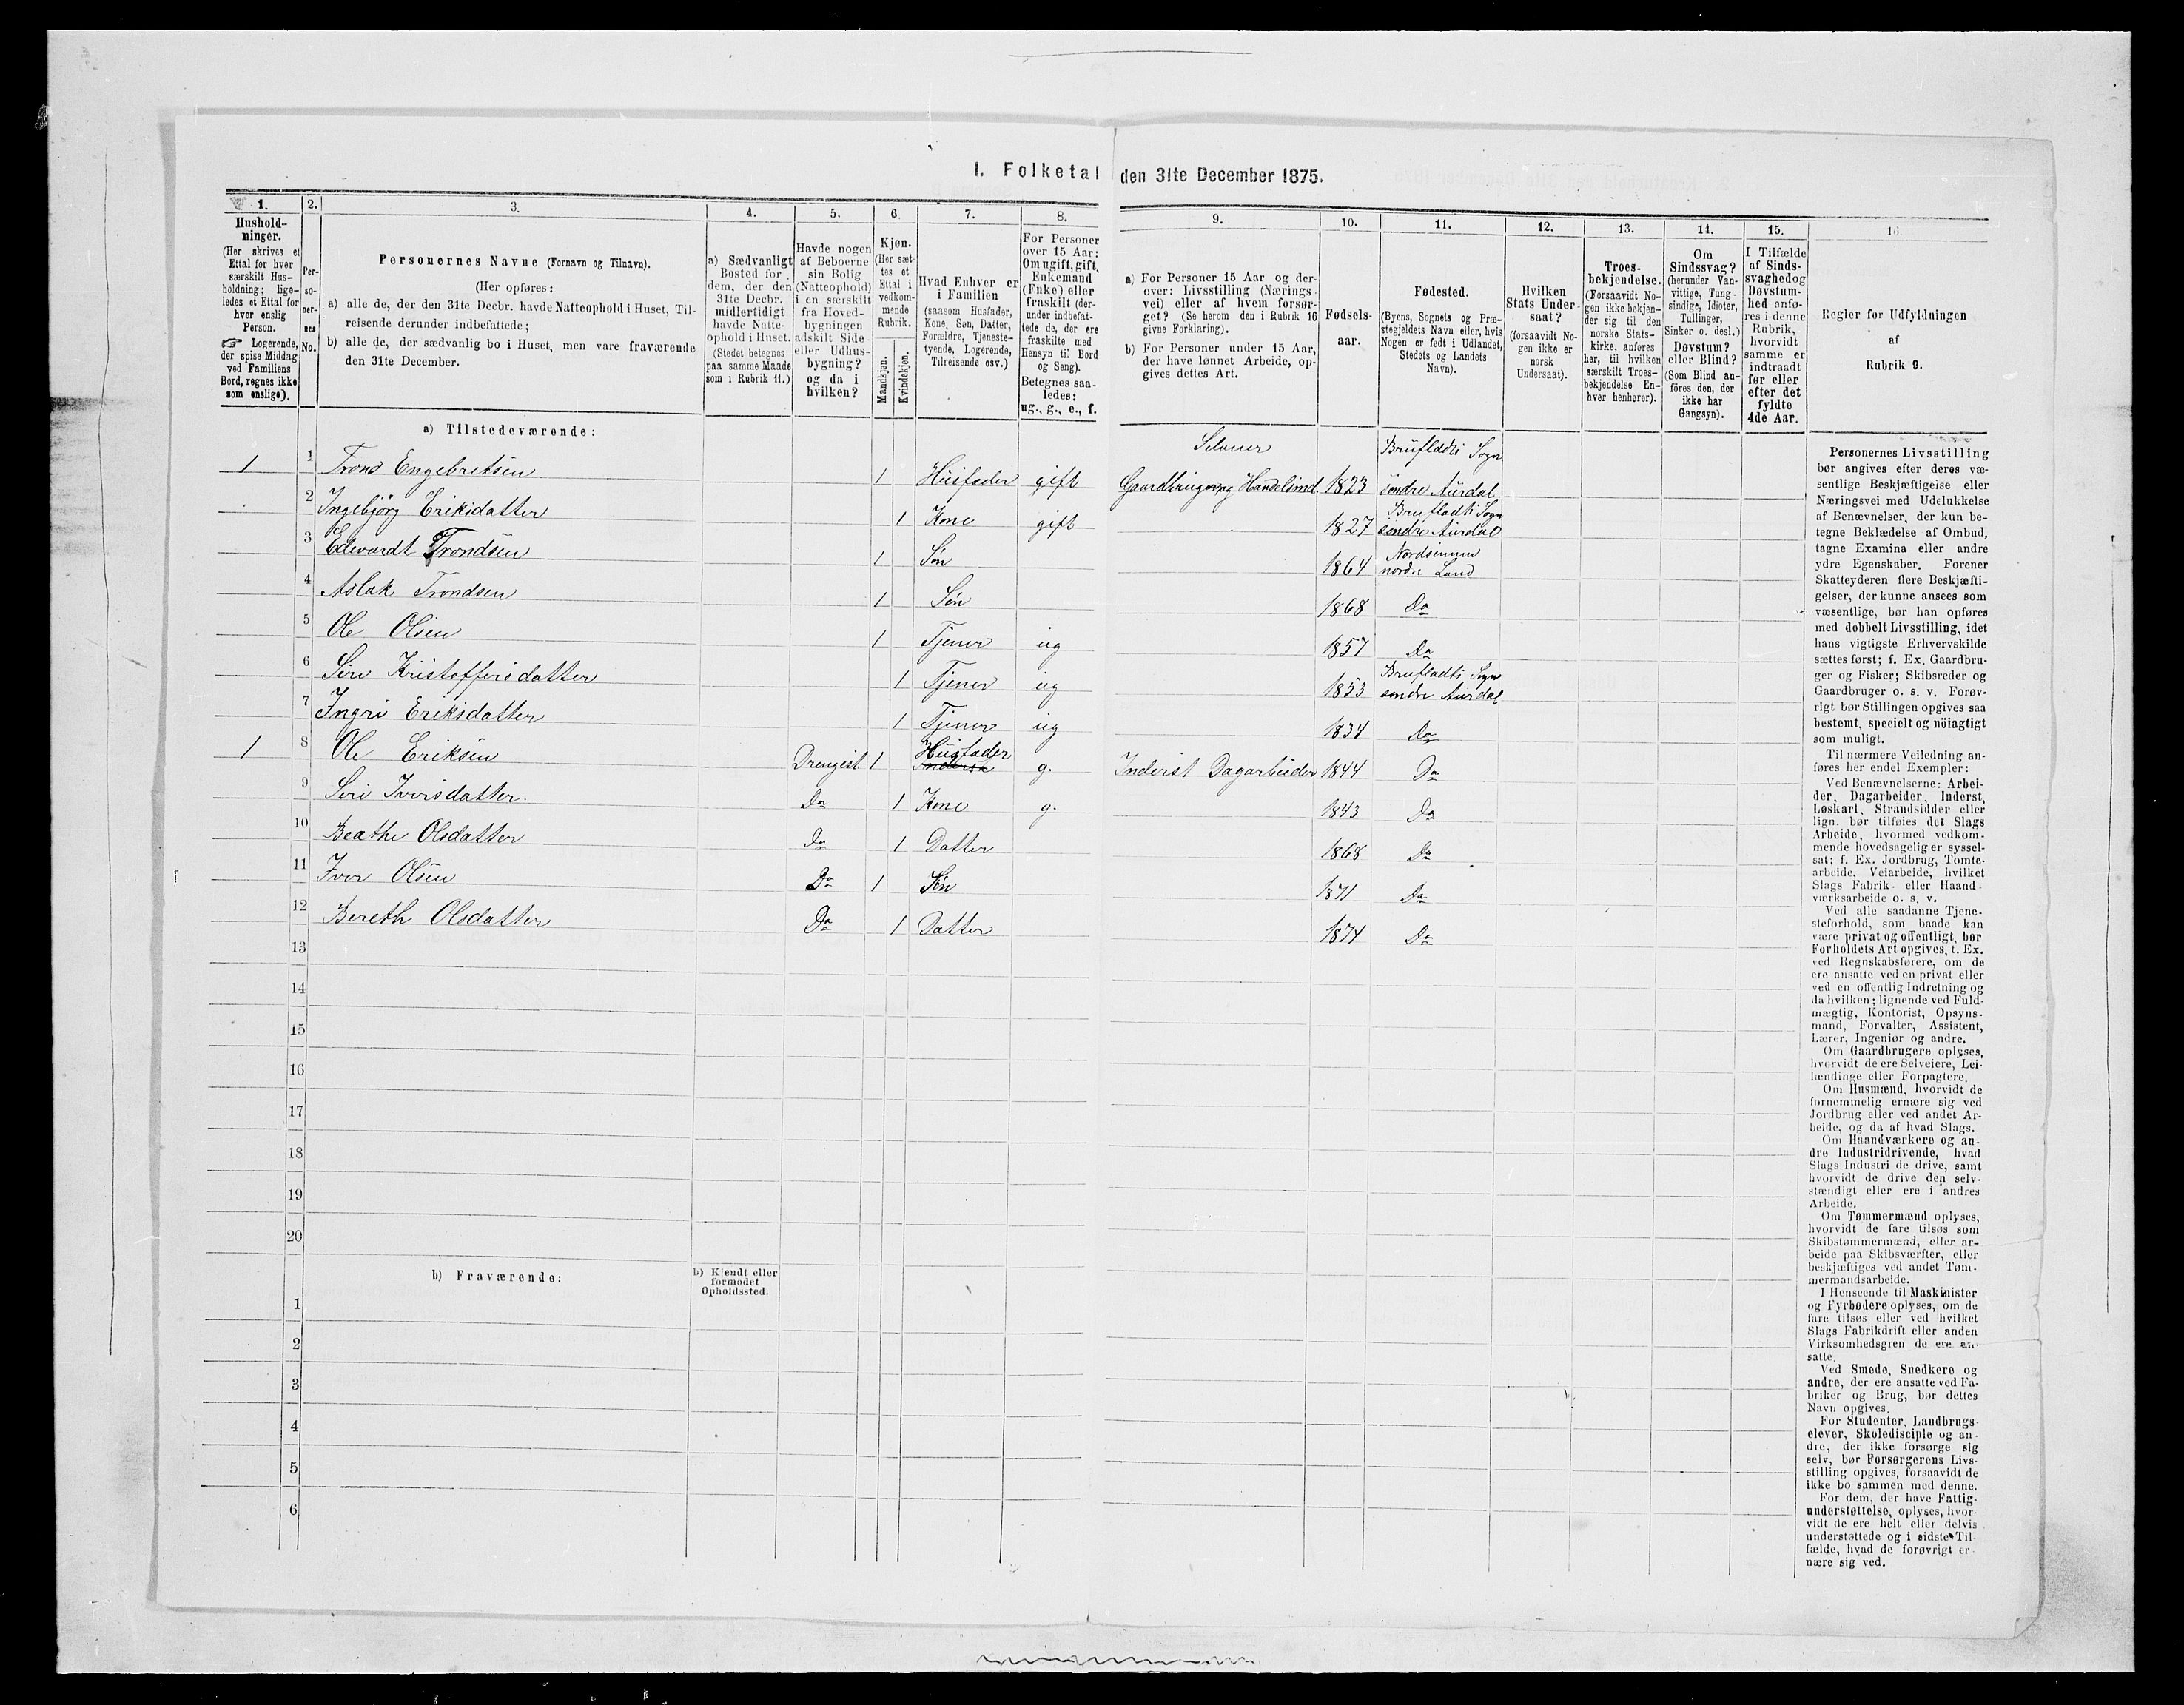 I. Folketal den 31te December 1875.
1.
Hushold-
ninger.
(Her skrives et
Ettal for hver
særskilt Hus-
holdning; lige-
ledes et Ettal for
hver enslig
Person.
☞ Logerende,
der spise Middag
ved Familiens
Bord, regnes ikke
som enslige).
2.
Per-
so-
ner-
nes
No.
3.
Personernes Navne (Fornavn og Tilnavn).
(Her opføres:
a) alle de, der den 31te Decbr. havde Natteophold i Huset, Til-
reisende derunder indbefattede;
b) alle de, der sædvanlig bo i Huset, men vare fraværende
den 31te December.
4.
a) Sædvanligt
Bosted for
dem, der den
31te Decbr.
midlertidigt
havde Natte-
ophold i Huset.
(Stedet betegnes
paa samme Maade
som i Rubrik 11.)
5.
Havde nogen
af Beboerne
sin Bolig
(Natteophold)
i en særskilt
fra Hoved-
bygningen
adskilt Side-
eller Udhus-
bygning?
og da i
hvilken?
6.
Kjøn.
(Her sæt-
tes et
Ettal i
vedkom-
mende
Rubrik.
Mandkjøn.
Kvindekjøn.
7.
Hvad Enhver er
i Familien
(saasom Husfader,
Kone, Søn, Datter,
Forældre, Tjeneste-
tyende, Logerende,
Tilreisende osv.)
8.
For Personer
over 15 Aar:
Om ugift, gift,
Enkemand
(Enke) eller
fraskilt (der-
under indbefat-
tede de, der ere
fraskilte med
Hensyn til Bord
og Seng).
Betegnes saa-
ledes:
ug., g., e., f.
9.
a) For Personer 15 Aar og der-
over: Livsstilling (Nærings-
vei) eller af hvem forsør-
get? (Se herom den i Rubrik 16
givne Forklaring).
b) For Personer under 15 Aar,
der have lønnet Arbeide, op-
gives dettes Art.
10.
Fødsels-
aar.
11.
Fødested.
(Byens, Sognets og Præ-
stegjeldets Navn eller, hvis
Nogen er født i Udlandet,
Stedets og Landets
Navn).
12.
Hvilken
Stats Under-
saat?
(forsaavidt No-
gen ikke er
norsk
Undersaat).
13.
Troes-
bekjendelse.
(Forsaavidt No-
gen ikke bekjen-
der sig til den
norske Stats-
kirke, anføres
her, til hvilken
særskilt Troes-
bekjendelse En-
hver henhører).
14.
Om
Sindssvag?
(herunder Van-
vittige, Tung-
sindige, Idioter,
Tullinger,
Sinker o. desl.)
Døvstum?
eller Blind?
(Som Blind an-
føres den, der
ikke har
Gangsyn).
15.
I Tilfælde
af Sinds-
svaghed og
Døvstum-
hed anfø-
res i denne
Rubrik,
hvorvidt
samme er
indtraadt
før eller
efter det
fyldte
4de Aar.
16.
Regler for Udfyldningen
af
Rubrik 9.
a) Tilstedeværende:
Selveier Brufladts Sogn
1 1 Trond Engebretsen 1 Husfader gift Gaardbruger og Handelsmd. 1823 søndre Aurdal
2 Ingebjørg Eriksdatter 1 Kone gift 1827 Brufladts Sogn søndre Aurdal
3 Edevardt Trondsen 1 Søn 1864 Nordsinnen nordre Land
4 Aslak Trondsen 1 Søn 1868 Do
5 Ole Olsen 1 Tjener ug 1857 Do
6 Siri Kristoffersdatter 1 Tjener ug 1853 Brufladts Sogn søndre Aurdal
7 Ingri Eriksdatter 1 Tjener ug 1834 Do
1 8 Ole Eriksen Drengest. 1 Husfader Inderst g. Inderst Dagarbeider 1844 Do
9 Siri Iversdatter. Do 1 Kone g. 1843 Do
10 Beathe Olsdatter Do 1 Datter 1868 Do
11 Iver Olsen Do 1 Søn 1871 Do
12 Bereth Olsdatter Do 1 Datter 1874 Do
13
14
15
16
17
18
19
20
b) Fraværende:
b) Kjendt eller
formodet
Opholdssted.
1
2
3
4
5
6
Personernes Livsstilling
bør angives efter deres væ-
sentlige Beskjæftigelse eller
Næringsvei med Udelukkelse
af Benævnelser, der kun be-
tegne Beklædelse af Ombud,
tagne Examina eller andre
ydre Egenskaber. Forener
Skatteyderen flere Beskjæfti-
gelser, der kunne ansees som
væsentlige, bør han opføres
med dobbelt Livsstilling, idet
hans vigtigste Erhvervskilde
sættes først; f. Ex. Gaardbru-
ger og Fisker; Skibsreder og
Gaardbruger o. s. v. Forøv-
rigt bør Stillingen opgives saa
bestemt, specielt og nöiagtigt
som muligt.
Til nærmere Veiledning an-
føres her endel Exempler:
Ved Benævnelserne: Arbei-
der, Dagarbeider, Inderst,
Løskarl, Strandsidder eller
lign. bør tilføies det Slags
Arbeide, hvormed vedkom-
mende hovedsagelig er syssel-
sat; f. Ex. Jordbrug, Tomte-
arbeide, Veiarbeide, hvilket
Slags Fabrik- eller Haand-
værksarbeide o. s. v.
Ved alle saadanne Tjene-
steforhold, som baade kan
være privat og offentligt, bør
Forholdets Art opgives, t. Ex.
ved Regnskabsførere, om de
ere ansatte ved en privat eller
ved en offentlig Indretning og
da hvilken; lignende ved Fuld-
mægtig, Kontorist, Opsyns-
mand, Forvalter, Assistent,
Lærer, Ingeniør og andre.
Om Gaardbrugere oplyses,
hvorvidt de ere Selveiere, Lei-
lændinge eller Forpagtere.
Om Husmænd, hvorvidt de
fornemmelig ernære sig ved
Jordbrug eller ved andet Ar-
beide, og da af hvad Slags.
Om Haandværkere og an-
dre Industridrivende, hvad
Slags Industri de drive, samt
hvorvidt de drive den selv-
stændigt eller ere i andres
Arbeide.
Om Tømmermænd oplyses,
hvorvidt de fare tilsøs som
Skibstømmermænd, eller ar-
beide paa Skibsværfter, eller
beskjæftiges ved andet Tøm-
mermandsarbeide.
I Henseende til Maskinister
og Fyrbødere oplyses, om de
fare tilsøs eller ved hvilket
Slags Fabrikdrift eller anden
Virksomhedsgren de ere an-
satte.
Ved Smede, Snedkere og
andre, der ere ansatte ved Fa-
briker og Brug, bør dettes
Navn opgives.
For Studenter, Landbrugs-
elever, Skoledisciple og an-
dre, der ikke forsørge sig
selv, bør Forsørgerens Livs-
stilling opgives, forsaavidt de
ikke bo sammen med denne.
For dem, der have Fattig-
understøttelse, oplyses, hvor-
vidt de ere helt eller delvis
understøttede og i sidste Til-
fælde, hvad de forøvrigt er-
nære sig ved.